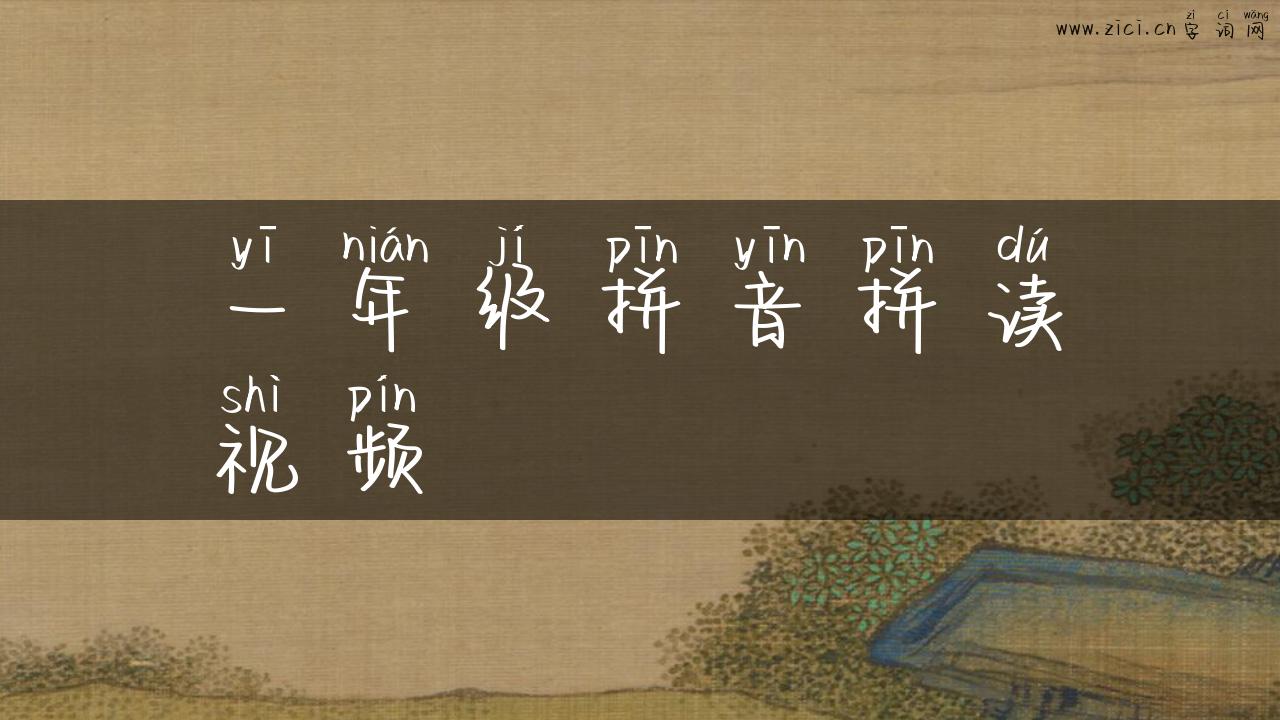 zì cí wǎng
www.zici.cn字词网
yī nián jí pīn yīn pīn dú
一年级拼音拼读
shì pín
视频